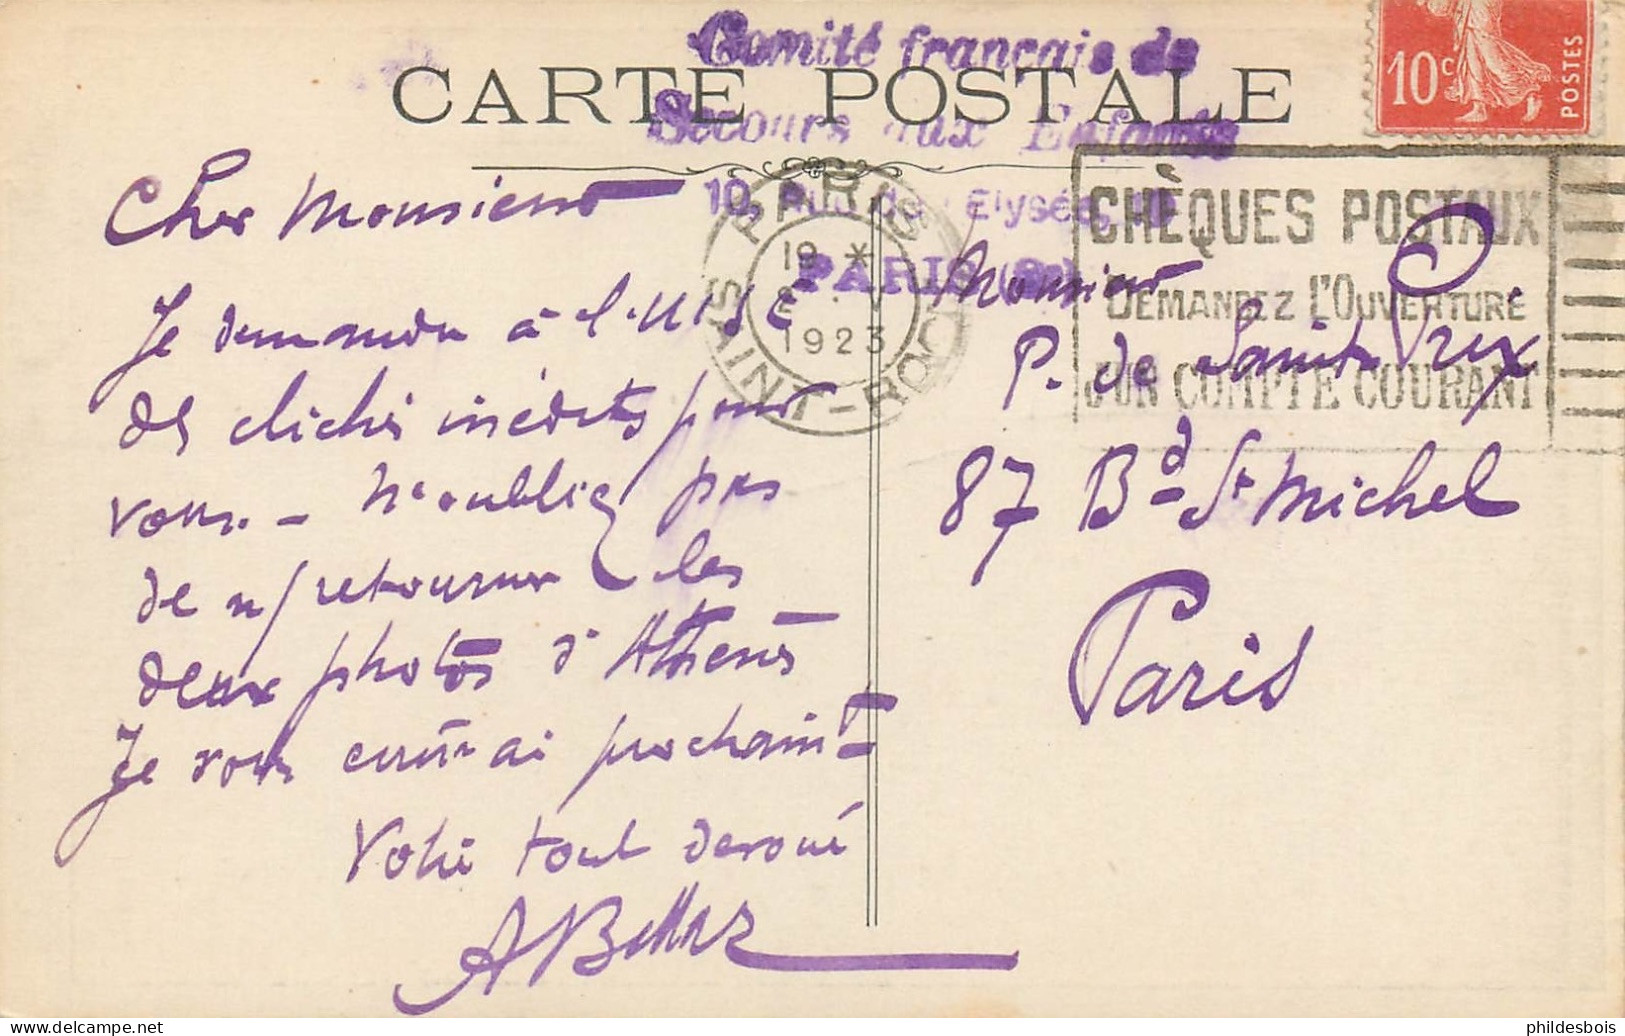 Comité français de
Secours aux Enfants
10, Rue de l'Elysée, 10
PARIS (8e)
CARTE POSTALE
10c
POSTES
PARIS
19 *
1923
SAINT-ROCH
CHÈQUES POSTAUX
DEMANDEZ L'OUVERTURE
D'UN COMPTE COURANT
Cher Monsieur
Je demande à l'UISE
des clichés inédits pour
vous. - N'oubliez pas
de m/ retourner les
deux photos d'Athènes
Je vous écrirai prochaint
Votre tout dévoué
A
Monsieur
P. de Sainte Prix
87 Bd St Michel
Paris
phildesbois